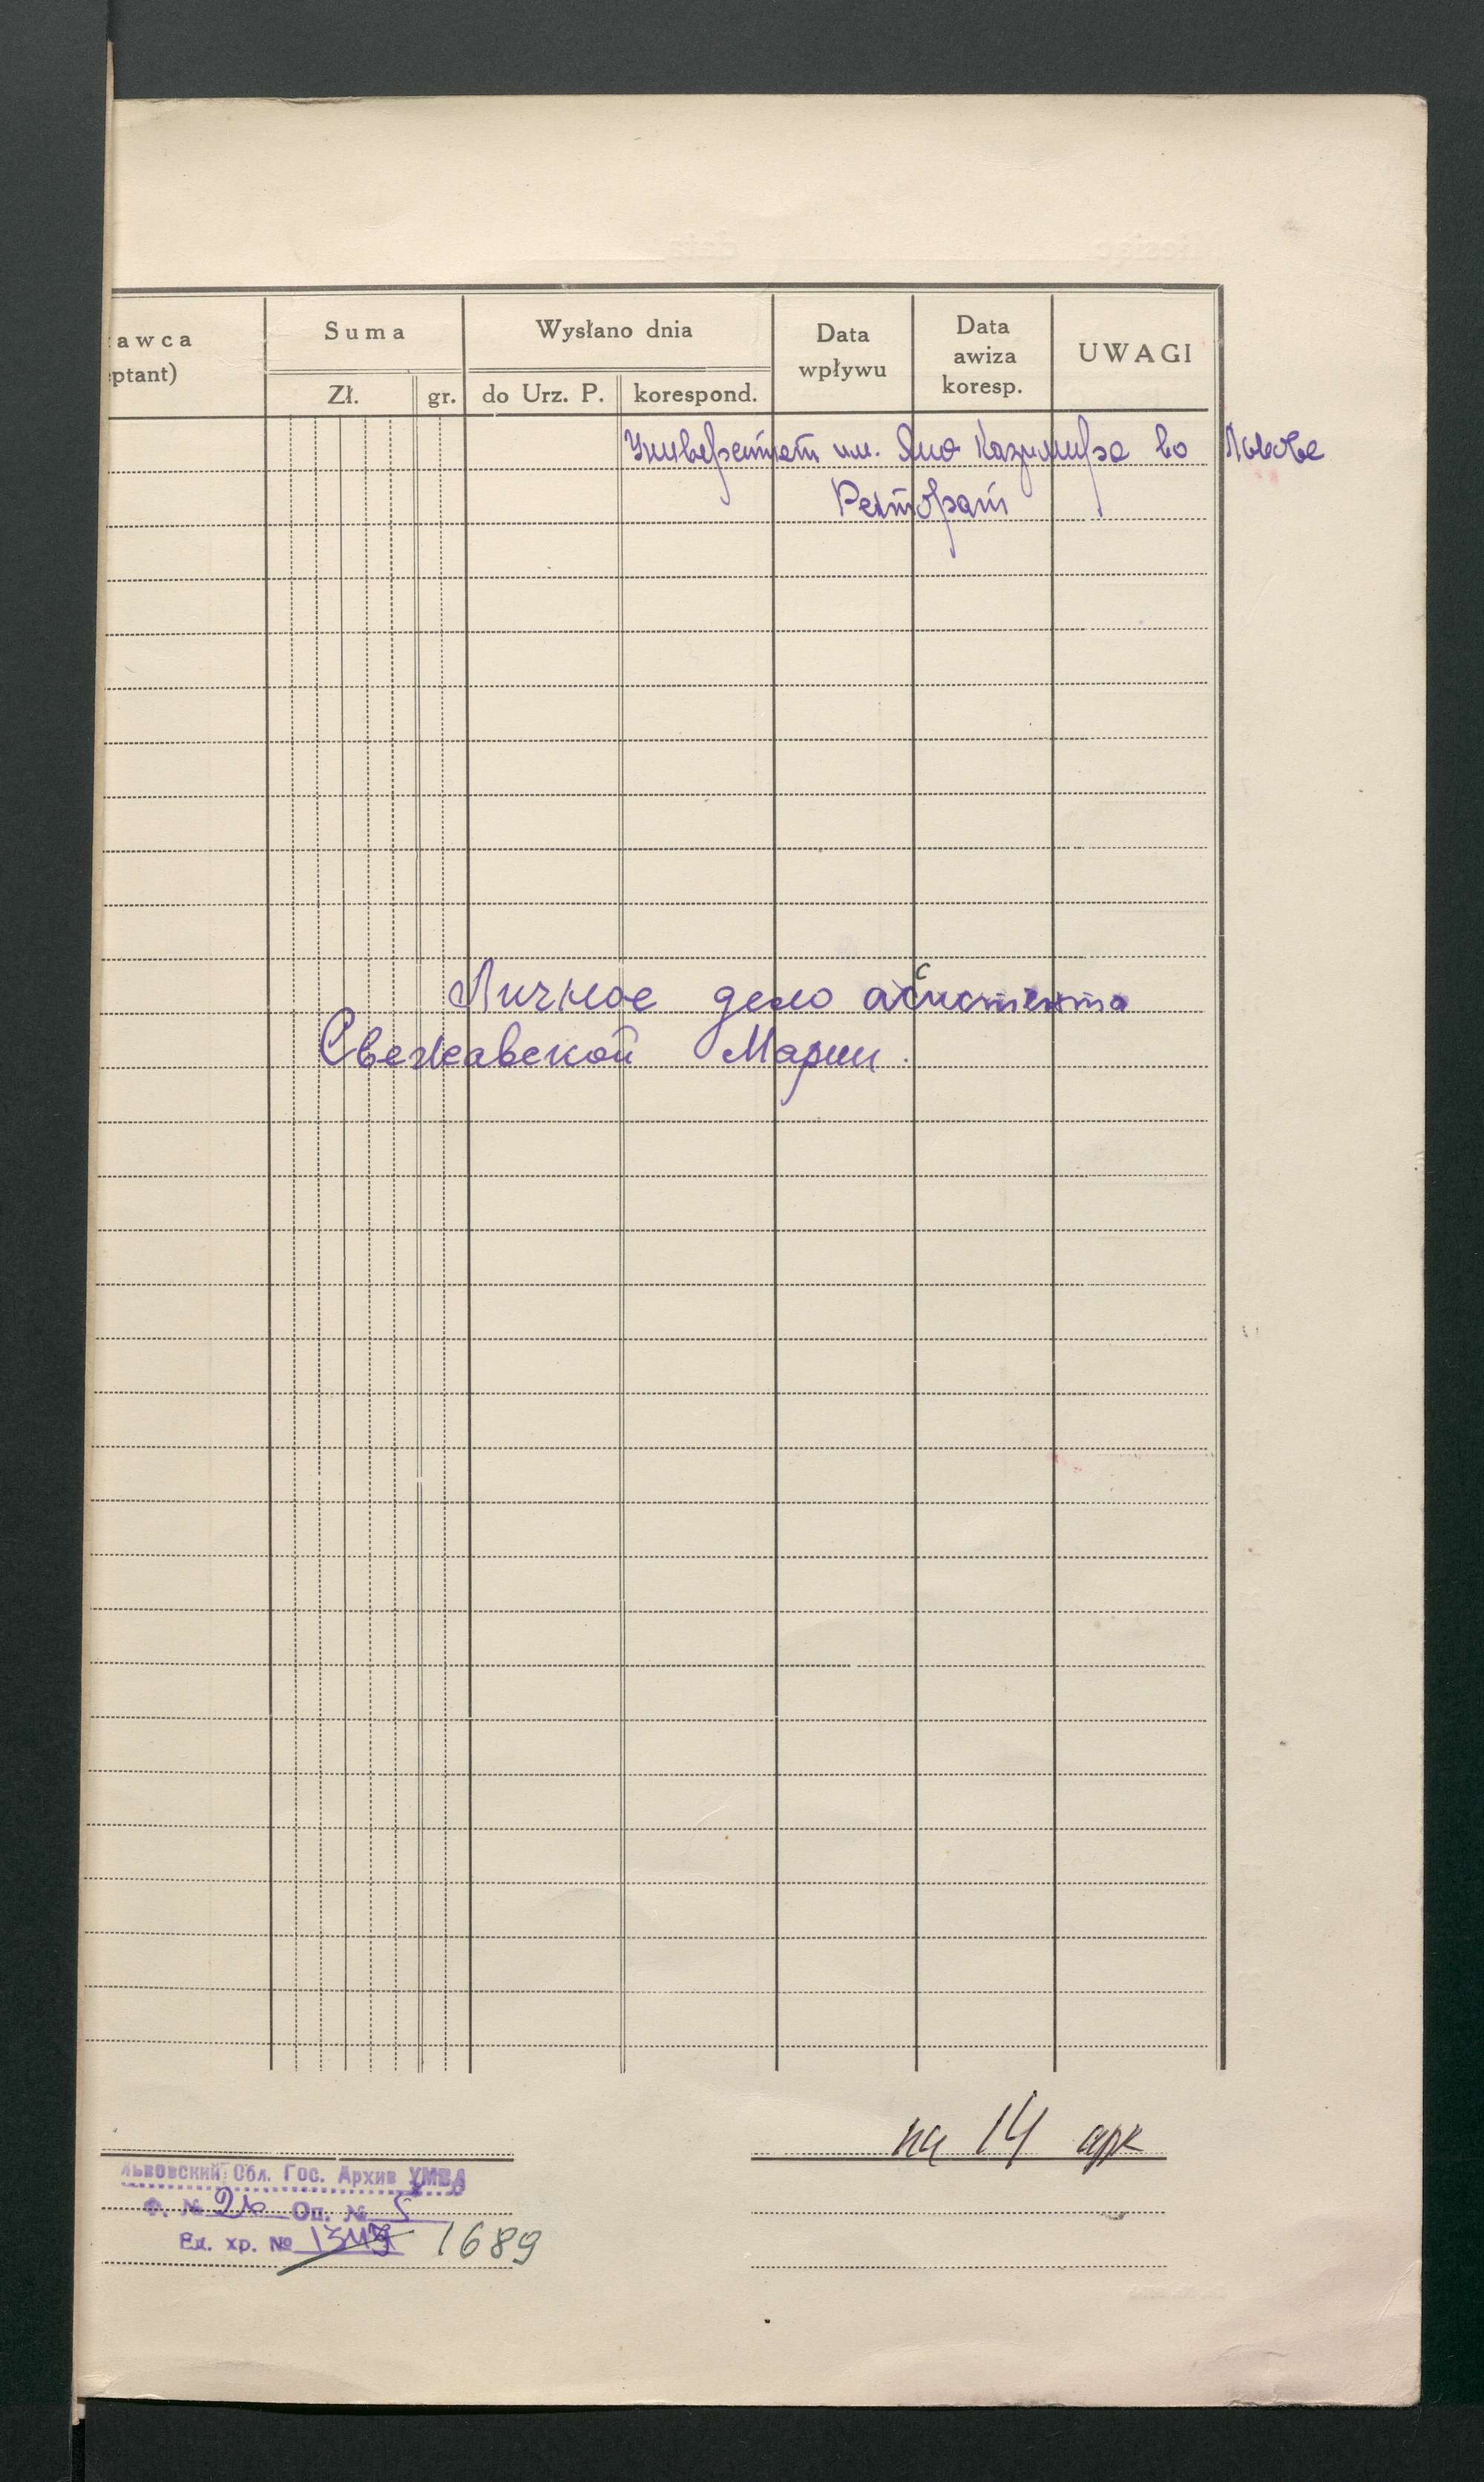 awca
ptant)
Suma
Zł. gr.
Wysłano dnia
do Urz. P. korespond.
Data wpływu
Data awiza koresp.
UWAGI
Университет им. Яна Казимира во Львове
Ректорат
Личное дело ассистента
Свежавской Марии.
на 14 арк
Львовский Обл. Гос. Архив УМВД
Ф. № 26 Оп. № 5
Ед. хр. № 1689